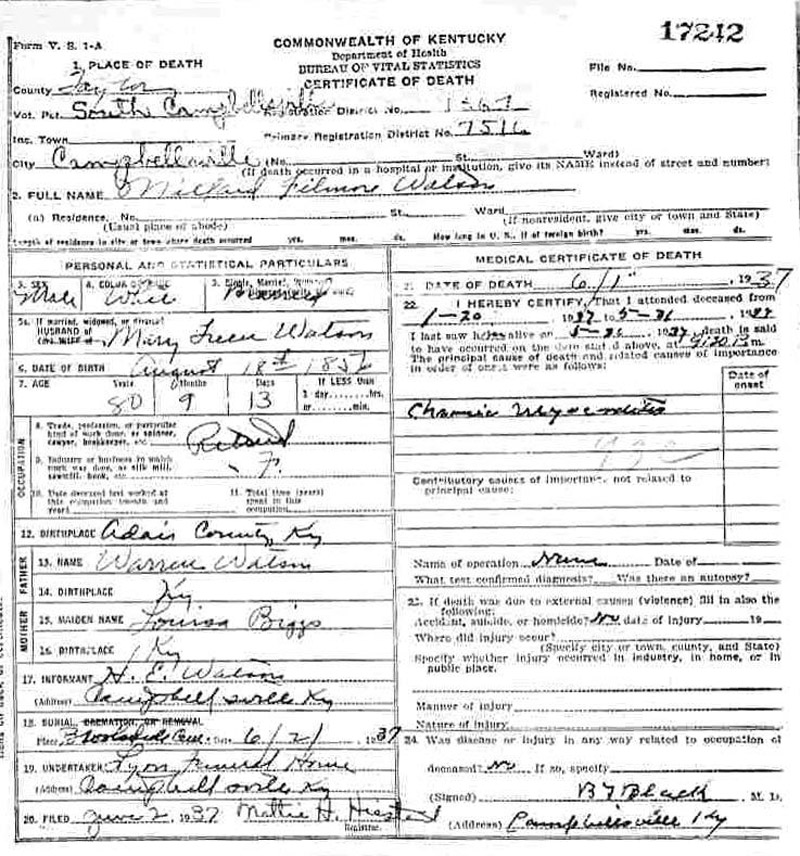 17242
Form V. S. 1-A
COMMONWEALTH OF KENTUCKY
Department of Health
BUREAU OF VITAL STATISTICS
CERTIFICATE OF DEATH
File No.
Registered No.
1. PLACE OF DEATH
County Taylor
Vot. Pct. South Campbellsville Registration District No. 1367
Inc. Town Primary Registration District No. 7516
City Campbellsville (No. St. Ward)
(If death occurred in a hospital or institution, give its NAME instead of street and number)
2. FULL NAME Millard Filmore Watson
(a) Residence, No. St. Ward
(Usual place of abode) (If nonresident, give city or town and State)
Length of residence in city or town where death occurred yrs. mos. ds. How long in U. S., if of foreign birth? yrs. mos. ds.
PERSONAL AND STATISTICAL PARTICULARS
3. SEX Male 4. COLOR OR RACE White 5. Single, Married, Widowed
5a. If married, widowed, or divorced
HUSBAND of Mary Watson
6. DATE OF BIRTH August 18th 1856
7. AGE Years Months Days If LESS than
80 9 13 1 day, hrs.
or min.
OCCUPATION
8. Trade, profession, or particular
kind of work done, as spinner,
sawyer, bookkeeper, etc. Retired
9. Industry or business in which
work was done, as silk mill,
sawmill, bank, etc.
10. Date deceased last worked at
this occupation (month and
year)
11. Total time (years)
spent in this
occupation
12. BIRTHPLACE Adair County, Ky
FATHER
13. NAME Warren Watson
14. BIRTHPLACE Ky
MOTHER
15. MAIDEN NAME Louisa Biggs
16. BIRTHPLACE Ky
17. INFORMANT H. E. Watson
(Address) Campbellsville Ky
18. BURIAL, CREMATION, OR REMOVAL
Place Brookside Cem. Date 6/2/ 1937
19. UNDERTAKER Lyon Funeral Home
(Address) Campbellsville Ky
20. FILED June 2, 1937 Mattie H.
Registrar.
MEDICAL CERTIFICATE OF DEATH
21. DATE OF DEATH 6/1, 1937
22. I HEREBY CERTIFY, That I attended deceased from
1-20 1937 to 5-31 1937
I last saw him alive on 5-31 1937, death is said
to have occurred on the date stated above, at m.
The principal cause of death and related causes of importance
in order of onset were as follows:
Date of
onset
Chronic Myocarditis
93c
Contributory causes of importance not related to
principal cause:
Name of operation None Date of
What test confirmed diagnosis? Was there an autopsy?
23. If death was due to external causes (violence) fill in also the
following:
Accident, suicide, or homicide? No date of injury 19
Where did injury occur?
(Specify city or town, county, and State)
Specify whether injury occurred in industry, in home, or in
public place.
Manner of injury
Nature of injury
24. Was disease or injury in any way related to occupation of
deceased? No If so, specify
(Signed) B T Black M. D.
(Address) Campbellsville Ky